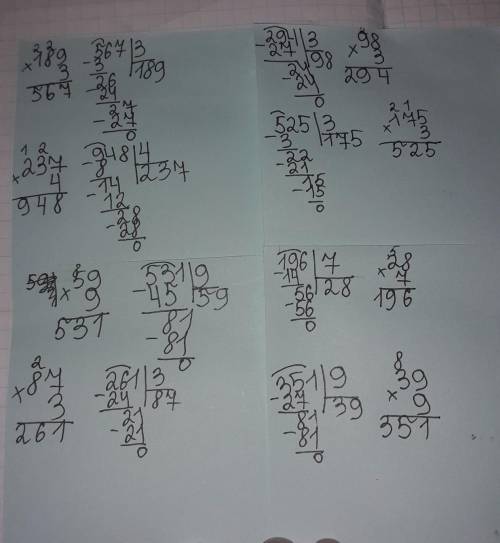 2 2
189
× 3
567
567|3
-3 |189
26
-24
27
-27
0
1 2
237
× 4
948
948|4
-8 |237
14
-12
28
-28
0
8
59
× 9
531
531|9
-45|59
81
-81
0
2
87
× 3
261
261|3
-24|87
21
-21
0
294|3
-27|98
24
-24
0
2
98
× 3
294
525|3
-3 |175
22
-21
15
-15
0
2 1
175
× 3
525
196|7
-14|28
56
-56
0
5
28
× 7
196
351|9
-27|39
81
-81
0
8
39
× 9
351